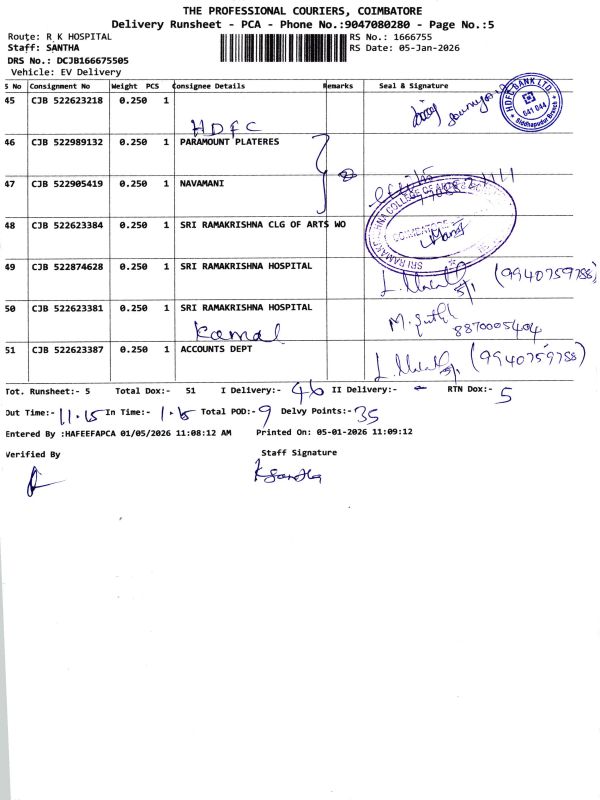 THE PROFESSIONAL COURIERS, COIMBATORE
Delivery Runsheet - PCA - Phone No.:9047080280 - Page No.:5
Route: R K HOSPITAL
RS No.: 1666755
Staff: SANTHA
RS Date: 05-Jan-2026
DRS No.: DCJB166675505
Vehicle: EV Delivery
S No Consignment No Weight PCS Consignee Details Remarks Seal & Signature
45 CJB 522623218 0.250 1
HDFC
HDFC BANK LTD. 641 044 Siddhapudur Branch
46 CJB 522989132 0.250 1 PARAMOUNT PLATERES
47 CJB 522905419 0.250 1 NAVAMANI
48 CJB 522623384 0.250 1 SRI RAMAKRISHNA CLG OF ARTS WO
COIMBATORE
49 CJB 522874628 0.250 1 SRI RAMAKRISHNA HOSPITAL
5/1 (9940759788)
50 CJB 522623381 0.250 1 SRI RAMAKRISHNA HOSPITAL
Kamal
8870005404
51 CJB 522623387 0.250 1 ACCOUNTS DEPT
5/1 (9940759788)
Tot. Runsheet:- 5 Total Dox:- 51 I Delivery:- 46 II Delivery:- - RTN Dox:- 5
Out Time:- 11.15 In Time:- 1.15 Total POD:- 9 Delvy Points:- 35
Entered By :HAFEEFAPCA 01/05/2026 11:08:12 AM Printed On: 05-01-2026 11:09:12
Verified By Staff Signature
K Santha